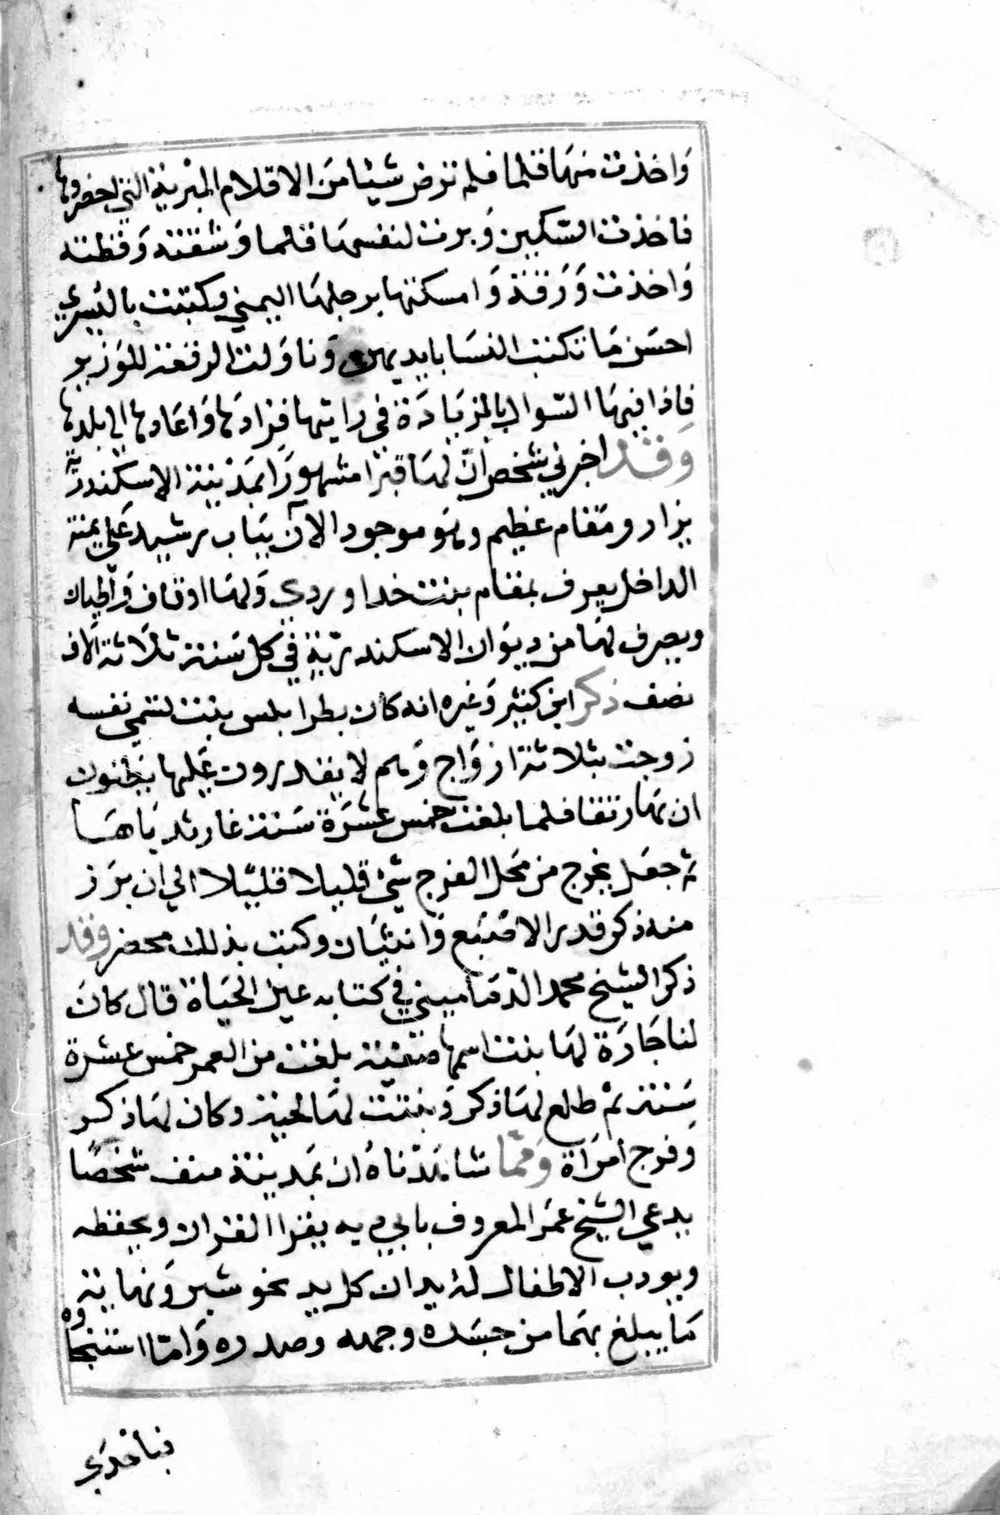 وَاخذت منهَا قلما فلم ترض شيئا منَ الاقلام المبرية التي احضروها
فاخذت السّكين وَبرت لنفسهَا قلما وَشقته وَقطته
وَاخذت وَرقة وَامسكتها برجلهَا اليمني وكتبت باليُسري
احسَن مَا تكتب النسَا بايديهن وَناوَلت الرقعة للوَزير
فاذا فيهَا السّوال بالزيَادَة في راتبها فزادهَا وَاعَادها الي بلدها
وَقد اخبرني شخص انّ لهَا قبرًا مشهورًا بمَدينة الاسكندرية
يزار ومَقام عَظيم وهوَ موجود الآن ببَاب رشيد عَلي يمنة
الداخل يعرف بمقام بنت خداوردي وَلهَا اوقاف وَاطيان
ويصرف لهَا من ديوَان الاسكندريّة في كل سَنة ثلاثة آلاف
نصف ذكر ابن كثير وَغيره انه كان بطرابلس بنت لتسمي نفسه
زوجت بثلاثة ازوَاج وَهم لا يقدرون عَليها يظنون
ان بهَا رتقا فلما بلغت خمس عَشرَة سَنة غارت ثديَاهَا
ثم جعَل يخرج من مَحل الفرج شئ قليلا قليلا الي ان برَز
منه ذكر قدر الاصبَع وَانثيَان وكتب بذلك محضر وَقد
ذكر الشيخ محمد الدّمَاميني في كتابه عين الحيَاة قال كانَ
لنا جَارَة لهَا بنت اسمها صَفيّة بلغت من العمر خمس عشرة
سَنة ثمْ طلع لهَا ذكر وَنبتت لهَا لحية وكان لهَا ذكر
وفرج امرَاة وَممّا شاهَدناهُ ان بمَدينة منف شخصًا
يدعي الشيخ عمَر المعروف بابي يديه يقرا القران ويحفظه
ويودب الاطفال له يدان كل يد نحو شبر وَنهاية
مَا يبلغ بهمَا من جسَده وجهه وصدره وَامّا استنجاوه
فباخدَي